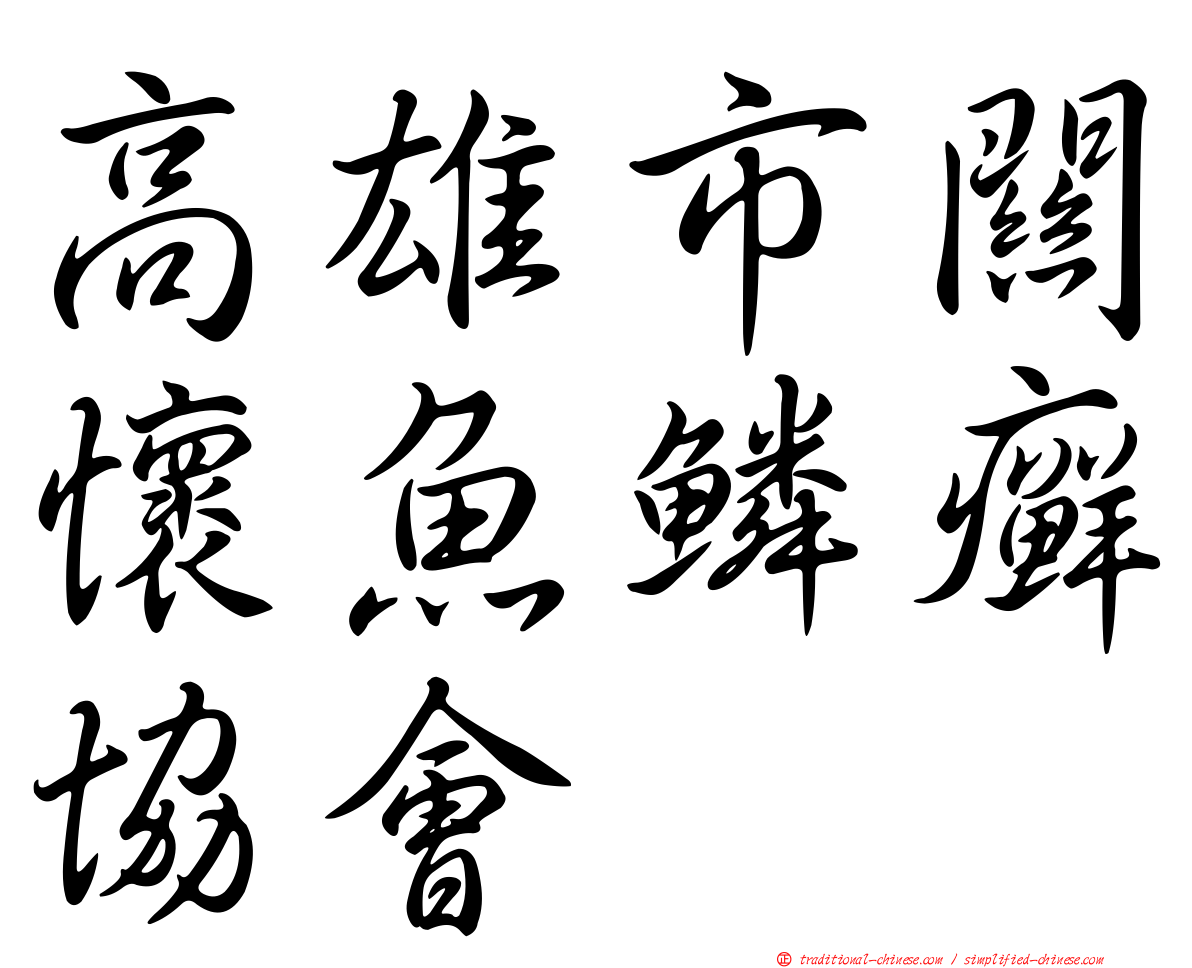 高雄市關
懷魚鱗癬
協會
㊣ traditional-chinese.com / simplified-chinese.com